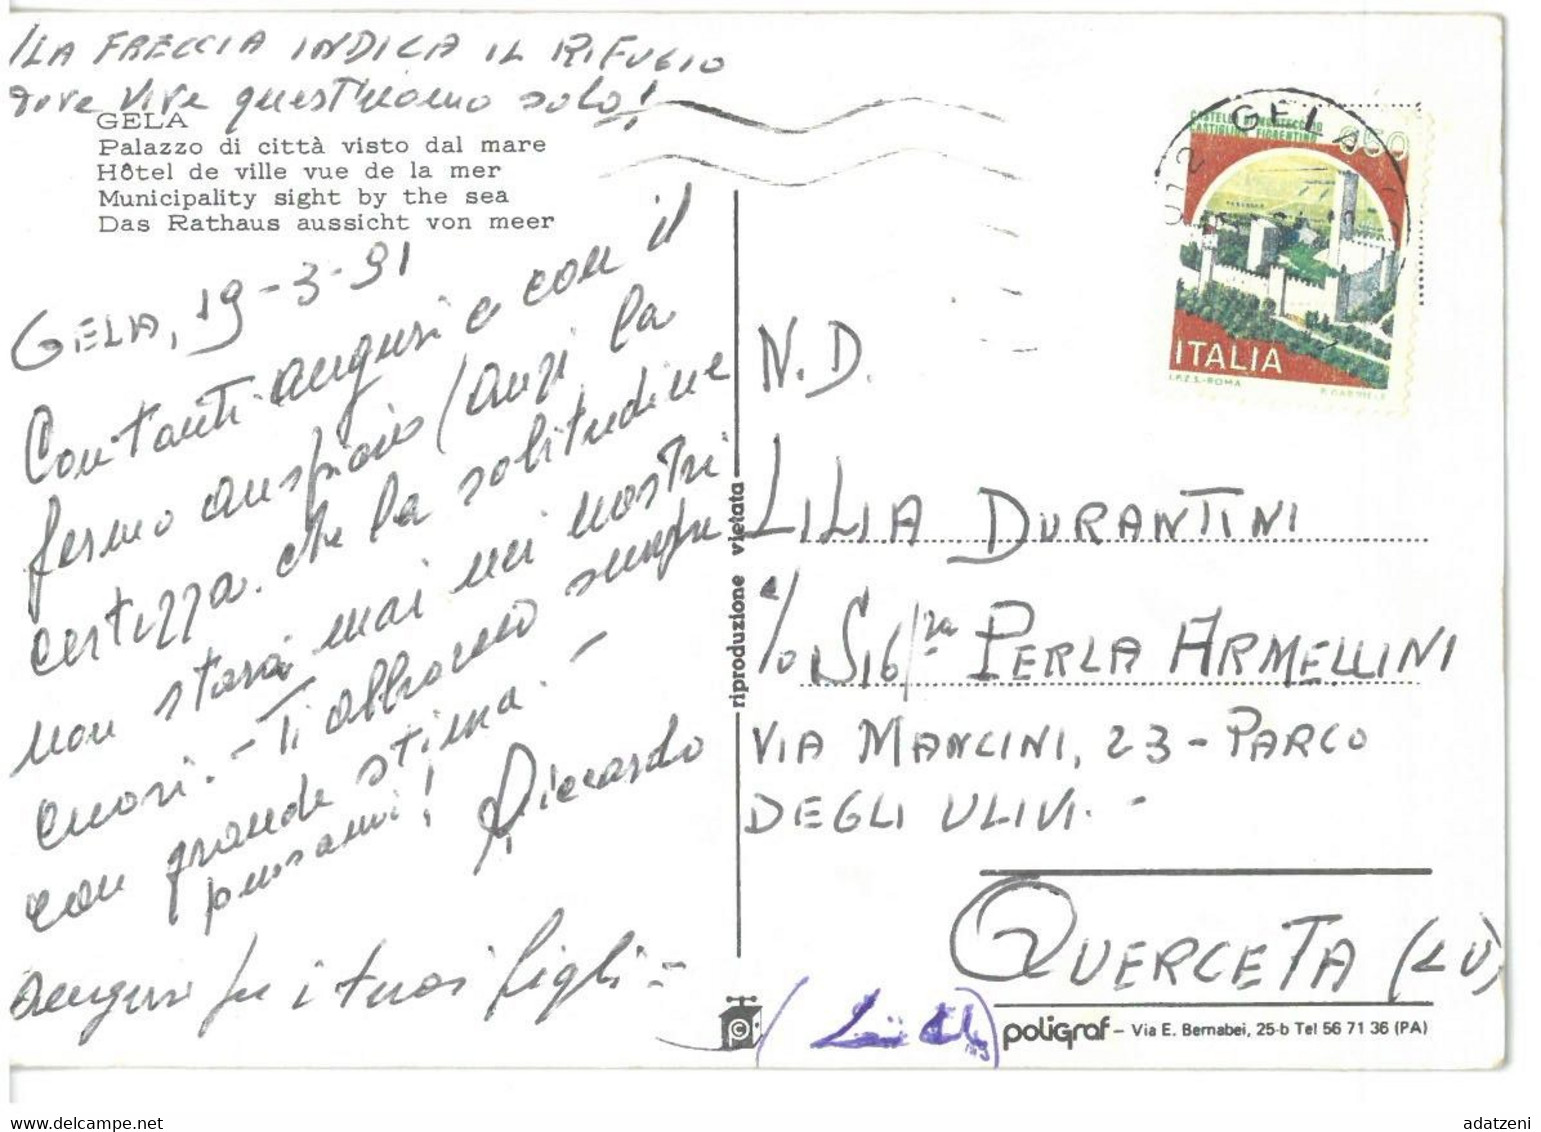 LA FRECCIA INDICA IL RIFUGIO
dove vive quest'uomo solo!
GELA
Palazzo di città visto dal mare
Hôtel de ville vue de la mer
Municipality sight by the sea
Das Rathaus aussicht von meer
GELA, 19-3-91
Con tanti auguri e con il
fermo auspicio (anzi la
certezza. che la solitudine
non starà mai nei nostri
cuori. - Ti abbraccio sempre
con grande stima. -
pensami! Riccardo
Auguri per i tuoi figli =
riproduzione vietata
GELA
CASTIGLION FIORENTINO
ITALIA
I.P.Z.S.-ROMA
N. D.
LILIA DURANTINI
c/o SIG/ra PERLA ARMELLINI
VIA MANCINI, 23 - PARCO
DEGLI ULIVI. -
QUERCETA (LU)
poligraf - Via E. Bernabei, 25-b Tel 56 71 36 (PA)
adatzeni